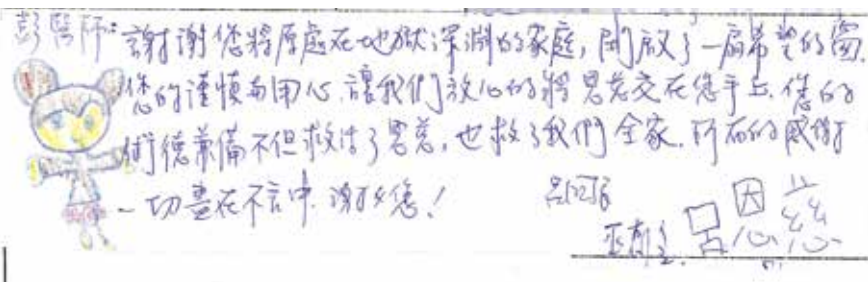 彭醫師：謝謝您將原處在地獄深淵的家庭，開啟了一扇希望的窗.
您的謹慎與用心.讓我們放心的將恩慈交在您手上.您的
術德兼備不但救活了恩慈，也救了我們全家.所有的感謝
一切盡在不言中.謝謝您！
呂恩慈